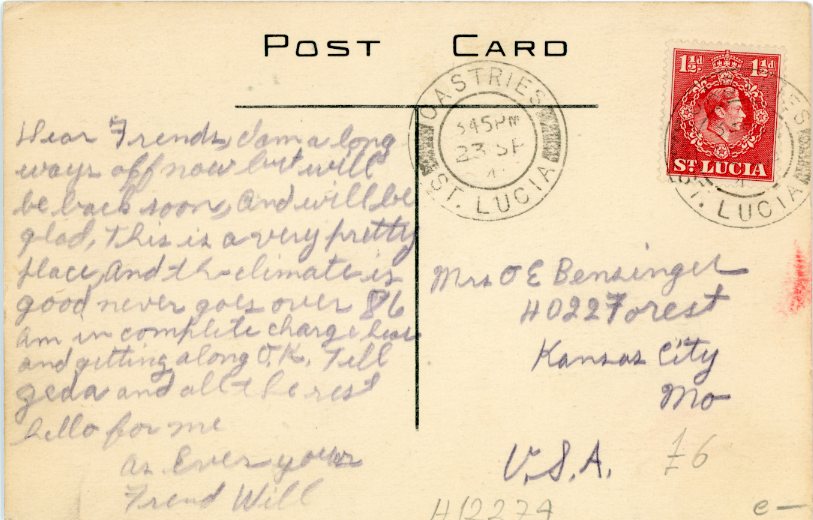 POST CARD
CASTRIES
3 45 PM
23 SP
ST. LUCIA
1½d 1½d
ST LUCIA
ST. LUCIA
Dear Frends, I am a long
ways off now but will
be back soon, and will be
glad, This is a very pretty
place, and the climate is
good never goes over 86
am in complete charge here
and getting along O.K. Tell
and all the rest
hello for me
as Ever your
Frend Will
Mrs O E Bensinger
4022 Forest
Kansas City
Mo
U.S.A.
£6
H12274
e—